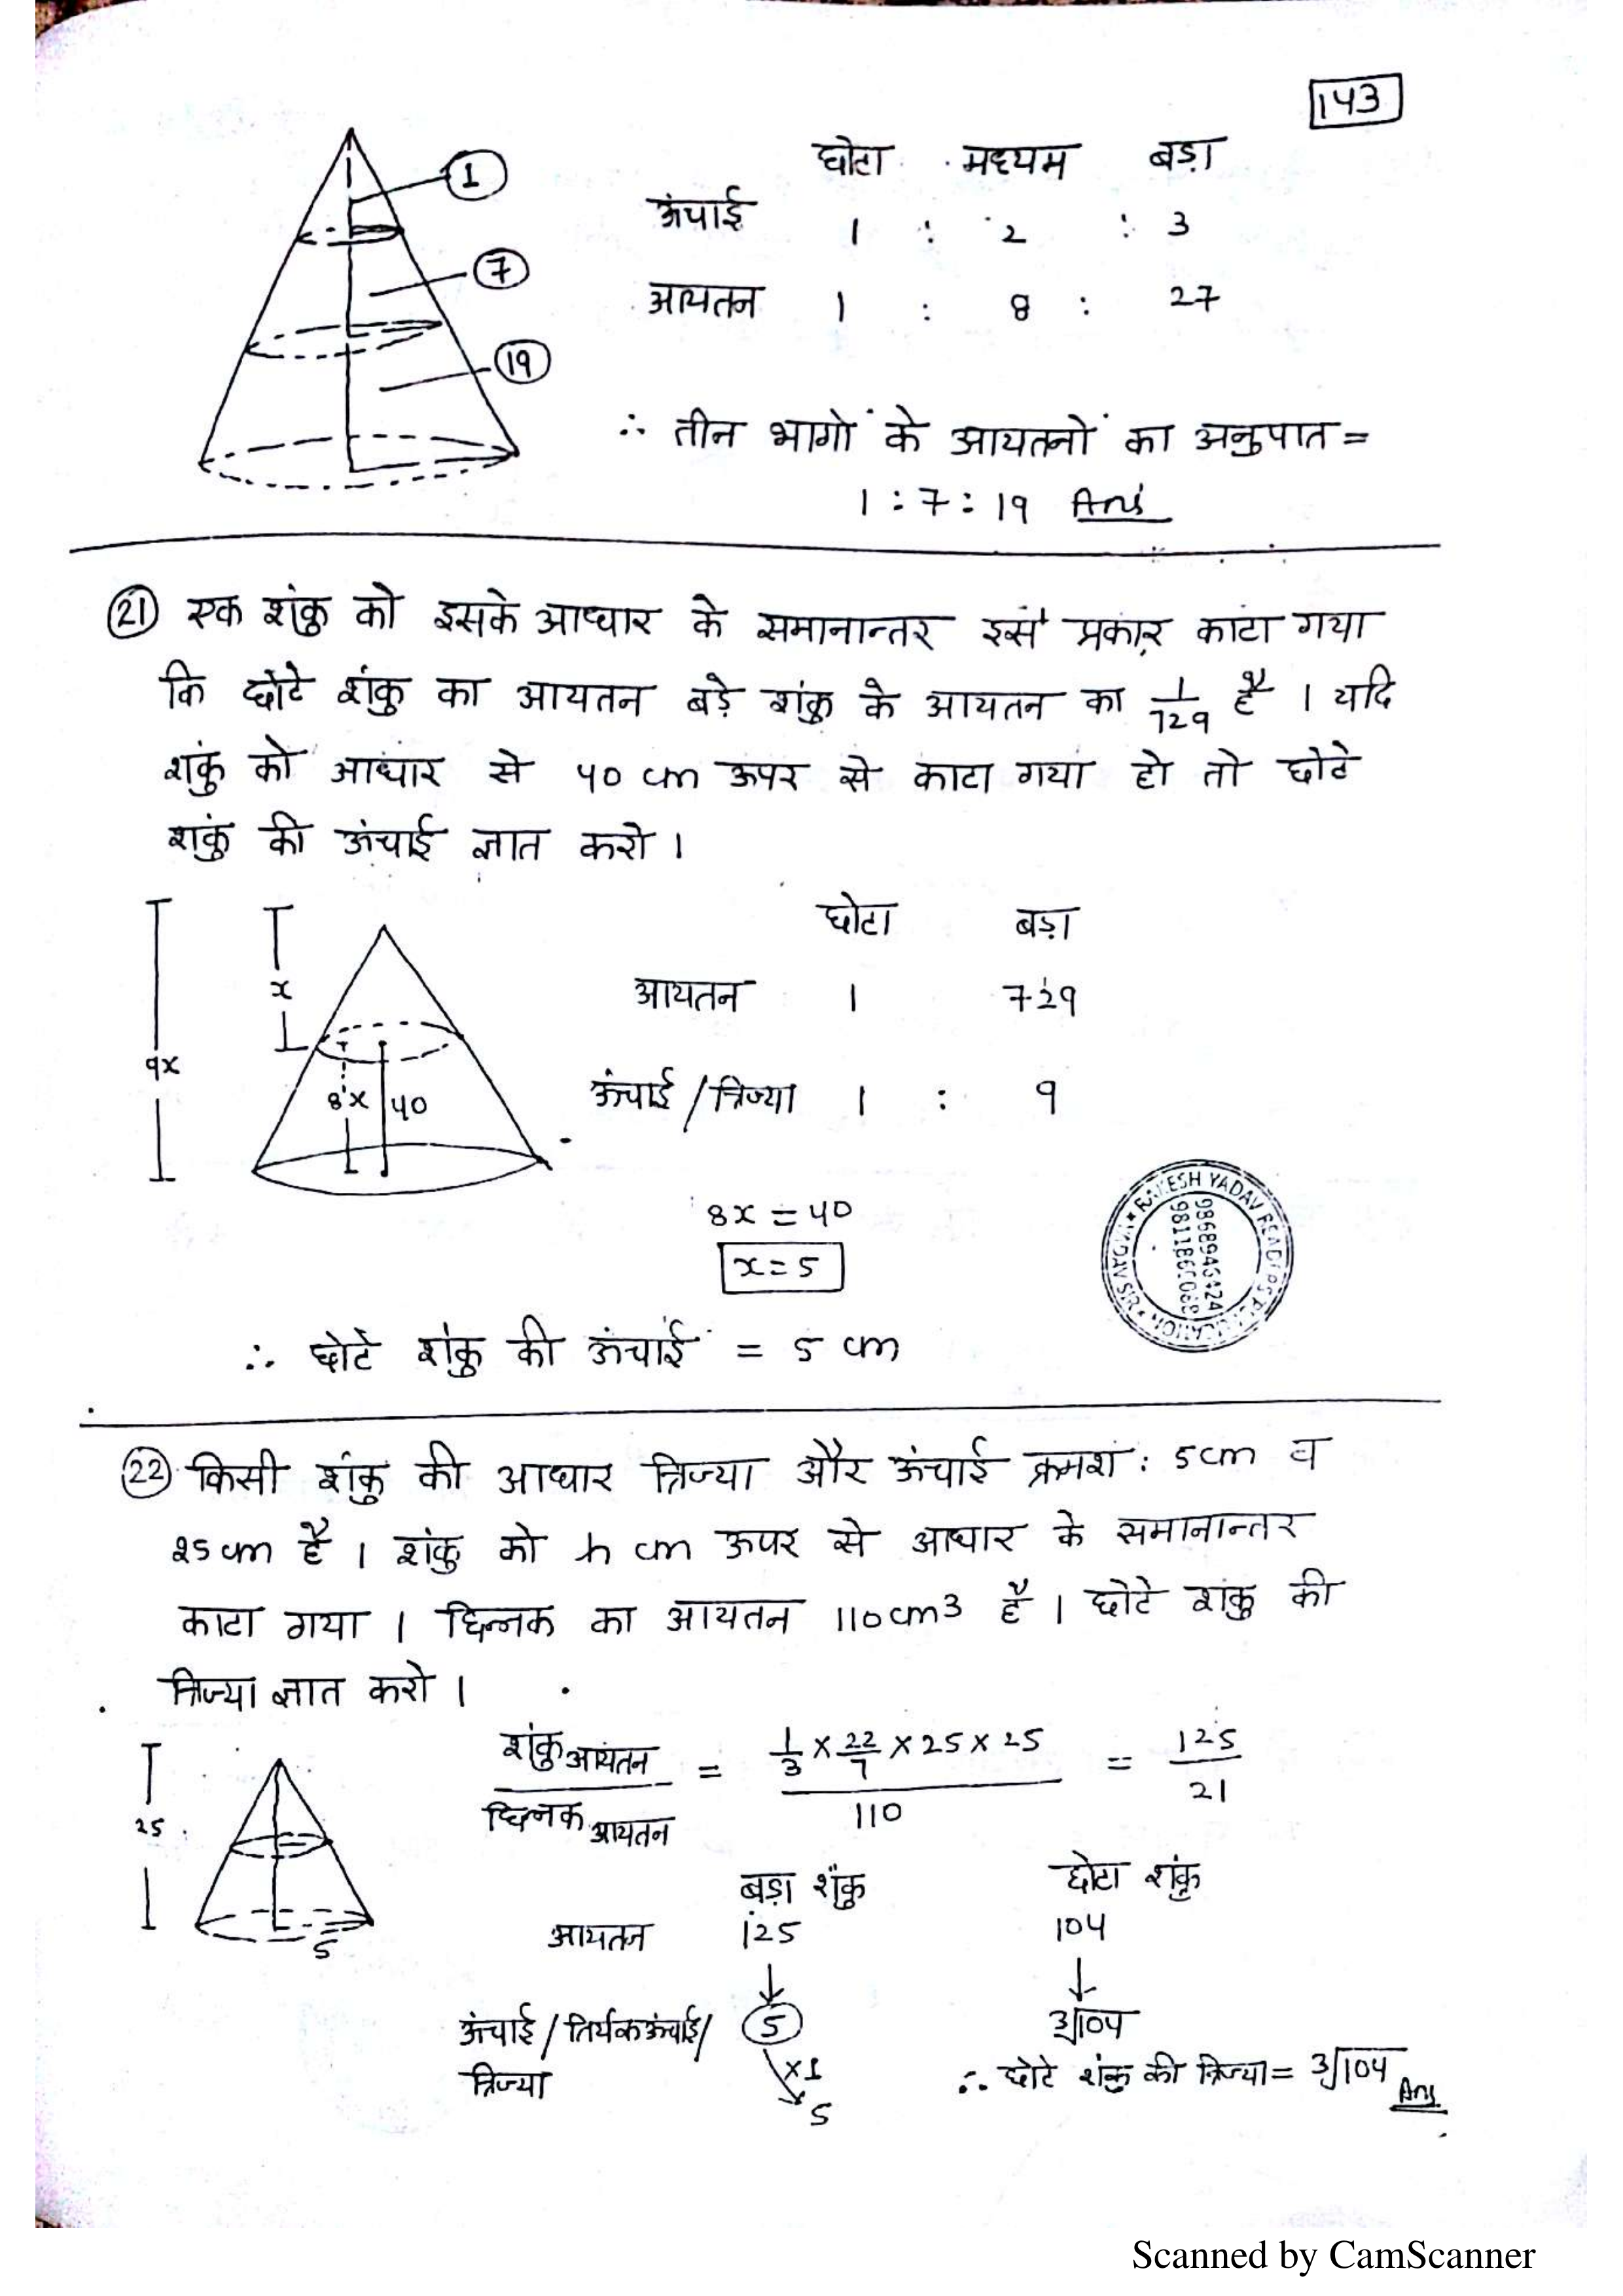 143
छोटा मध्यम बड़ा
ऊंचाई 1 : 2 : 3
आयतन 1 : 8 : 27
1
7
19
∴ तीन भागों के आयतनों का अनुपात =
1 : 7 : 19 Ans
(21) एक शंकु को इसके आधार के समानान्तर इस प्रकार काटा गया
कि छोटे शंकु का आयतन बड़े शंकु के आयतन का 1/729 है । यदि
शंकु को आधार से 40 cm ऊपर से काटा गया हो तो छोटे
शकुं की ऊंचाई ज्ञात करो ।
छोटा बड़ा
आयतन 1 729
ऊंचाई / त्रिज्या 1 : 9
x
9x
8x 40
8x = 40
x = 5
RAKESH YADAV READERS PUBLICATION
9868946424
∴ छोटे शंकु की ऊंचाई = 5 cm
(22) किसी शंकु की आधार त्रिज्या और ऊंचाई क्रमश: 5cm व
25cm है । शंकु को h cm ऊपर से आधार के समानान्तर
काटा गया । छिन्नक का आयतन 110cm3 है । छोटे शंकु की
त्रिज्या ज्ञात करो ।
शंकु आयतन / छिन्नक आयतन = 1/3 × 22/7 × 25 × 25 / 110 = 125/21
25
5
बड़ा शंकु छोटा शंकु
आयतन 125 104
ऊंचाई / तिर्यक ऊंचाई / 5 3√104
त्रिज्या ×1 5
∴ छोटे शंकु की त्रिज्या = 3√104 Ans
Scanned by CamScanner